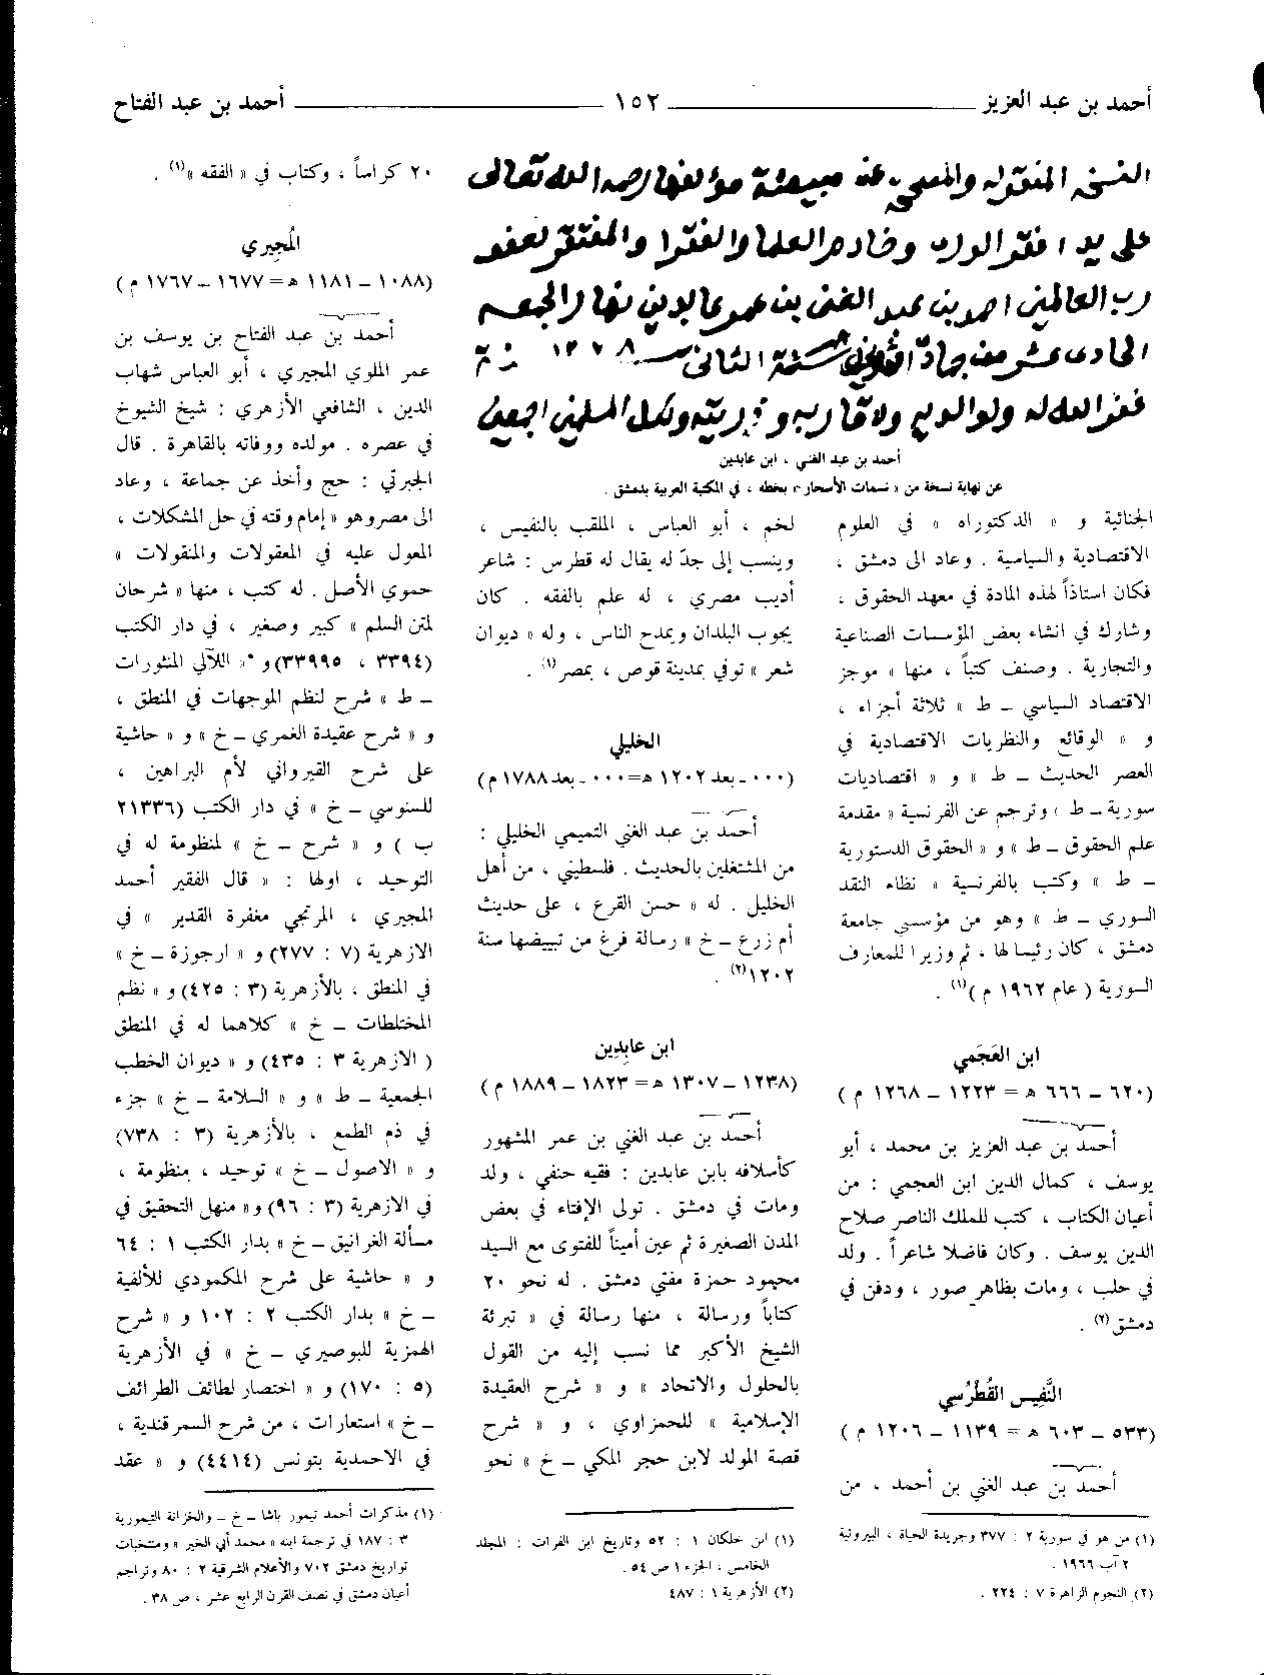 أحمد بن عبد العزيز ــــــ ١٥٢ ــــــ أحمد بن عبد الفتاح
على يد افقر الورى وخادم العلما والفقرا والمفتقر لعفو
رب العالمين احمد بن عبد الغنى بن عمر عابدين نهار الجمعه
غفر الله له ولوالديه ولاقاربه وذريته ولكل المسلمين اجمعين
أحمد بن عبد الغني ، ابن عابدين
عن نهاية نسخة من « نسمات الأسحار » بخطه ، في المكتبة العربية بدمشق .
الجنائية و « الدكتوراه » في العلوم
الاقتصادية والسياسية . وعاد الى دمشق ،
فكان استاذاً لهذه المادة في معهد الحقوق ،
وشارك في انشاء بعض المؤسسات الصناعية
والتجارية . وصنف كتباً ، منها « موجز
الاقتصاد السياسي ــ ط » ثلاثة أجزاء ،
و « الوقائع والنظريات الاقتصادية في
العصر الحديث ــ ط » و « اقتصاديات
سورية ــ ط » وترجم عن الفرنسية « مقدمة
علم الحقوق ــ ط » و « الحقوق الدستورية
ــ ط » وكتب بالفرنسية « نظام النقد
السوري ــ ط » وهو من مؤسسي جامعة
دمشق ، كان رئيسا لها ، ثم وزيرا للمعارف
السورية ( عام ١٩٦٢ م )(١) .
ابن العَجَمي
(٦٢٠ ــ ٦٦٦ ه = ١٢٢٣ ــ ١٢٦٨ م )
أحمد بن عبد العزيز بن محمد ، أبو
يوسف ، كمال الدين ابن العجمي : من
أعيان الكتاب ، كتب للملك الناصر صلاح
الدين يوسف . وكان فاضلا شاعراً . ولد
في حلب ، ومات بظاهر صور ، ودفن في
دمشق(٢) .
النَّفِيس القُطْرُسي
(٥٣٣ ــ ٦٠٣ ه = ١١٣٩ ــ ١٢٠٦ م )
أحمد بن عبد الغني بن أحمد ، من
(١) من هو في سورية ٢ : ٣٧٧ وجريدة الحياة ، البيروتية
٢ آب ١٩٦٦ .
(٢) النجوم الزاهرة ٧ : ٢٢٤ .
لخم ، أبو العباس ، الملقب بالنفيس ،
وينسب إلى جدّ له يقال له قطرس : شاعر
أديب مصري ، له علم بالفقه . كان
يجوب البلدان ويمدح الناس ، وله « ديوان
شعر » توفي بمدينة قوص ، بمصر(١) .
الخليلي
(٠٠٠ ــ بعد ١٢٠٢ ه=٠٠٠ ــ بعد ١٧٨٨ م)
أحمد بن عبد الغني التميمي الخليلي :
من المشتغلين بالحديث . فلسطيني ، من أهل
الخليل . له « حسن القرع ، على حديث
أم زرع ــ خ » رسالة فرغ من تبييضها سنة
١٢٠٢(٢) .
ابن عابِدِين
(١٢٣٨ ــ ١٣٠٧ ه = ١٨٢٣ ــ ١٨٨٩ م )
أحمد بن عبد الغني بن عمر المشهور
كأسلافه بابن عابدين : فقيه حنفي ، ولد
ومات في دمشق . تولى الإفتاء في بعض
المدن الصغيرة ثم عين أميناً للفتوى مع السيد
محمود حمزة مفتي دمشق . له نحو ٢٠
كتاباً ورسالة ، منها رسالة في « تبرئة
الشيخ الأكبر مما نسب إليه من القول
بالحلول والاتحاد » و « شرح العقيدة
الإسلامية » للحمزاوي ، و « شرح
قصة المولد لابن حجر المكي ــ خ » نحو
(١) ابن خلكان ١ : ٥٢ وتاريخ ابن الفرات : المجلد
الخامس ، الجزء ١ ص ٥٤ .
(٢) الأزهرية ١ : ٤٨٧
٢٠ كراساً ، وكتاب في « الفقه »(١) .
المُجِيري
(١٠٨٨ ــ ١١٨١ ه = ١٦٧٧ ــ ١٧٦٧ م )
أحمد بن عبد الفتاح بن يوسف بن
عمر الملوي المجيري ، أبو العباس شهاب
الدين ، الشافعي الأزهري : شيخ الشيوخ
في عصره . مولده ووفاته بالقاهرة . قال
الجبرتي : حج وأخذ عن جماعة ، وعاد
الى مصر وهو « إمام وقته في حل المشكلات ،
المعول عليه في المعقولات والمنقولات »
حموي الأصل . له كتب ، منها « شرحان
لمتن السلم » كبير وصغير ، في دار الكتب
(٣٣٩٤ ، ٣٣٩٩٥) و « اللآلي المنثورات
ــ ط » شرح لنظم الموجهات في المنطق ،
و « شرح عقيدة الغمري ــ خ » و « حاشية
على شرح القيرواني لأم البراهين ،
للسنوسي ــ خ » في دار الكتب (٢١٣٣٦
ب ) و « شرح ــ خ » لمنظومة له في
التوحيد ، اولها : « قال الفقير أحمد
المجيري ، المرتجي مغفرة القدير » في
الازهرية (٧ : ٢٧٧) و « ارجوزة ــ خ »
في المنطق ، بالأزهرية (٣ : ٤٢٥) و « نظم
المختلطات ــ خ » كلاهما له في المنطق
( الازهرية ٣ : ٤٣٥) و « ديوان الخطب
الجمعية ــ ط » و « السلامة ــ خ » جزء
في ذم الطمع ، بالأزهرية (٣ : ٧٣٨)
و « الاصول ــ خ » توحيد ، منظومة ،
في الازهرية (٣ : ٩٦) و « منهل التحقيق في
مسألة الغرانيق ــ خ » بدار الكتب ١ : ٦٤
و « حاشية على شرح المكمودي للألفية
ــ خ » بدار الكتب ٢ : ١٠٢ و « شرح
الهمزية للبوصيري ــ خ » في الأزهرية
(٥ : ١٧٠) و « اختصار لطائف الطرائف
ــ خ » استعارات ، من شرح السمرقندية ،
في الاحمدية بتونس (٤٤١٤) و « عقد
(١) مذكرات أحمد تيمور باشا ــ خ ــ والخزانة التيمورية
٣ : ١٨٧ في ترجمة ابنه « محمد أبي الخير » ومنتخبات
تواريخ دمشق ٧٠٢ والأعلام الشرقية ٢ : ٨٠ وتراجم
أعيان دمشق في نصف القرن الرابع عشر ، ص ٣٨ .